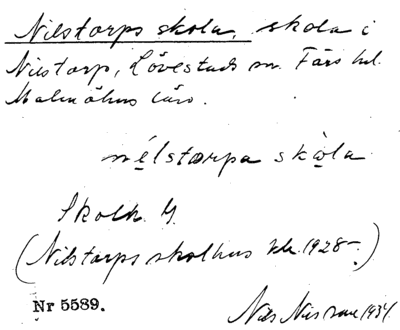 Nilstorps skola, skola i
Nilstorp, Lövestads sn. Färs hd.
Malmöhus län.
nélstorpa skola
Skolh. G.
(Nilstorps skolhus kbr. 1928-)
Nr 5589. Nils 1934